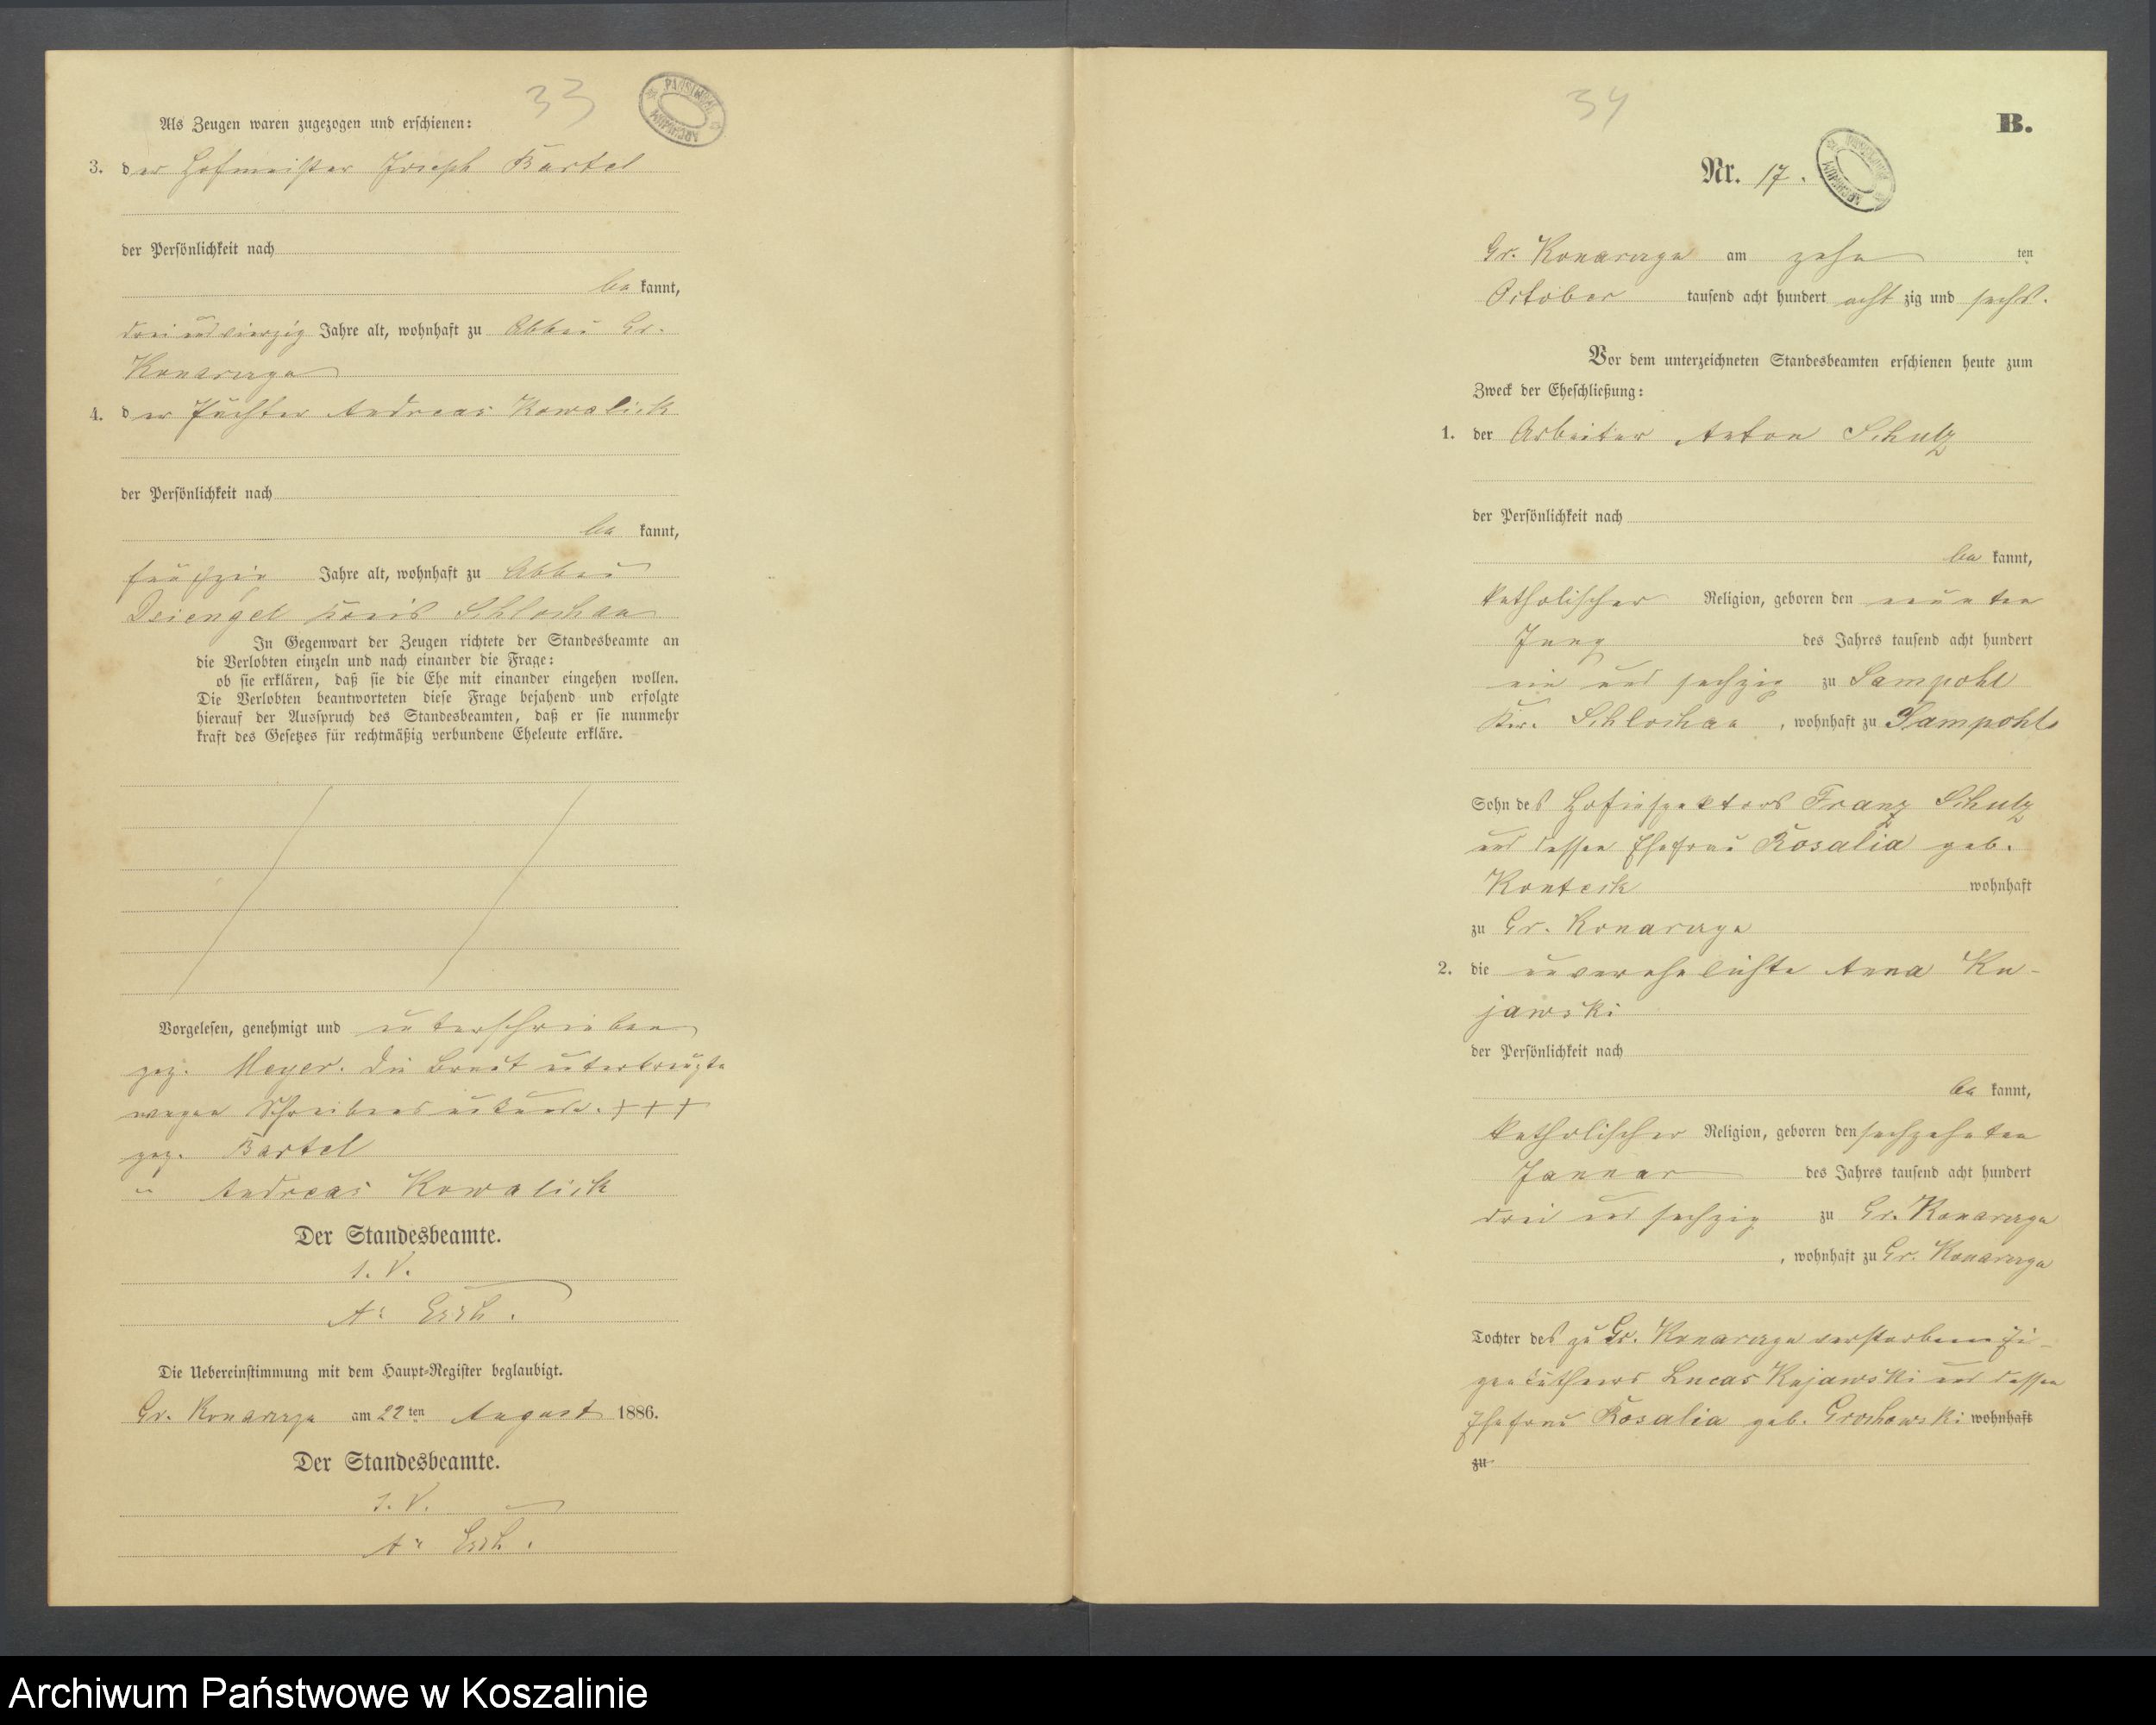 33
Als Zeugen waren zugezogen und erschienen:
3. der Hofmeister Joseph Bartel
der Persönlichkeit nach
be kannt,
drei und vierzig Jahre alt, wohnhaft zu Abbau Gr.
Konarczyn
4. der Pächter Andreas Kowalick
der Persönlichkeit nach
be kannt,
fünfzig Jahre alt, wohnhaft zu Abbau
Kreis Schlochau
In Gegenwart der Zeugen richtete der Standesbeamte an
die Verlobten einzeln und nach einander die Frage:
ob sie erklären, daß sie die Ehe mit einander eingehen wollen.
Die Verlobten beantworteten diese Frage bejahend und erfolgte
hierauf der Ausspruch des Standesbeamten, daß er sie nunmehr
kraft des Gesetzes für rechtmäßig verbundene Eheleute erkläre.
Vorgelesen, genehmigt und unterschrieben
gez. Meyer. Die Braut unterkreuzte
wegen Schreibensunkunde. +++
gez. Bartel
" Andreas Kowalick
Der Standesbeamte.
I. V.
Die Uebereinstimmung mit dem Haupt-Register beglaubigt.
Gr. Konarczyn am 22 ten August 1886.
Der Standesbeamte.
I. V.
34
B.
Nr. 17.
Gr. Konarczyn am zehn ten
October tausend acht hundert acht zig und sechs.
Vor dem unterzeichneten Standesbeamten erschienen heute zum
Zweck der Eheschließung:
1. der Arbeiter Anton Schulz
der Persönlichkeit nach
be kannt,
katholischer Religion, geboren den neunten
Juny des Jahres tausend acht hundert
ein und sechzig zu Sampohl
Kr. Schlochau, wohnhaft zu Sampohl
Sohn des Hofinspektors Franz Schulz
und dessen Ehefrau Rosalia geb.
Konteck wohnhaft
zu Gr. Konarczyn
2. die unverehelichte Anna Ku-
jawski
der Persönlichkeit nach
be kannt,
katholischer Religion, geboren den sechzehnten
Januar des Jahres tausend acht hundert
drei und sechzig zu Gr. Konarczyn
, wohnhaft zu Gr. Konarczyn
Tochter des zu Gr. Konarczyn verstorbenen Ei-
genthümers Lucas Kujawski und dessen
Ehefrau Rosalia geb. Grochowski wohnhaft
zu
Archiwum Państwowe w Koszalinie